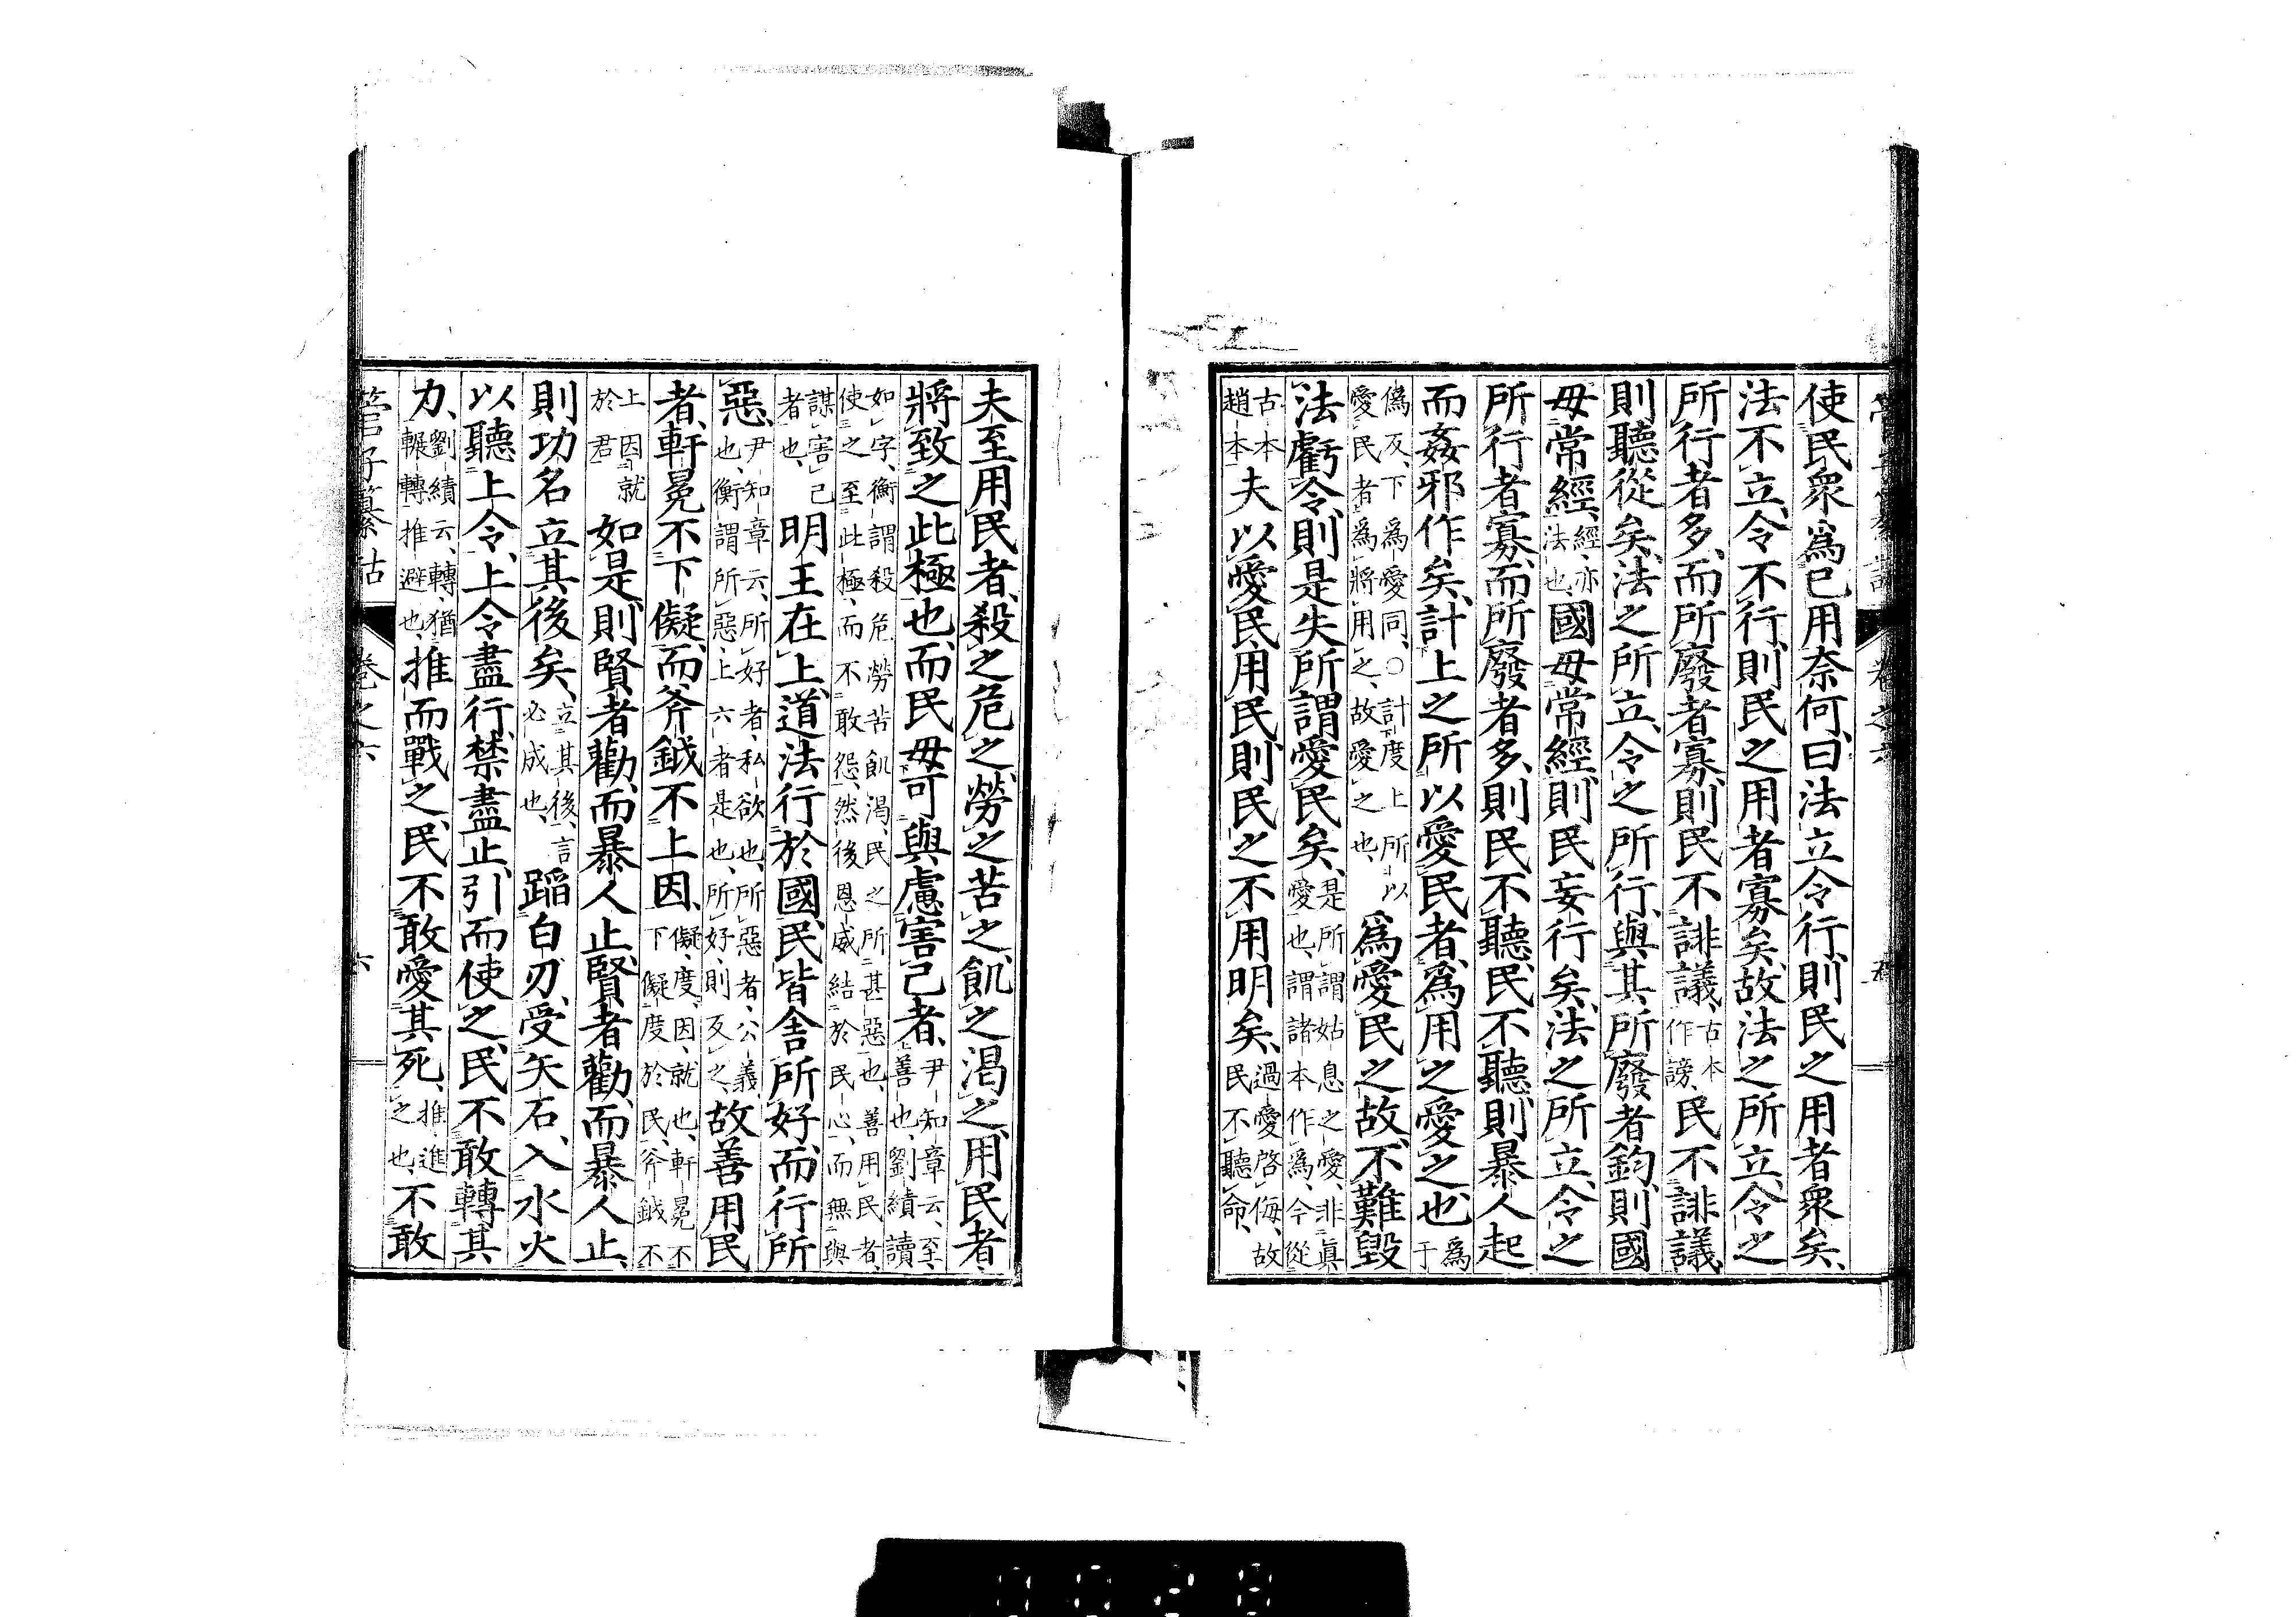 使民衆爲己用奈何、曰法立令行、則民之用者衆矣、
法不立、令不行、則民之用者寡矣、故法之所立、令之
所行者多、而所廢者寡、則民不誹議、古本作謗、民不誹議
則聽從矣、法之所立、令之所行、與其所廢者鈞、則國
毋常經、經、亦法也、國毋常經、則民妄行矣、法之所立、令之
所行者寡、而所廢者多、則民不聽、民不聽、則暴人起
而姦邪作矣、計上之所以愛民者、爲用之愛之也、爲于
僞反、下爲愛同、○計度上所以愛民者、爲將用之、故愛之也、爲愛民之故、不難毀
法虧令、則是失所謂愛民矣、是所謂姑息之愛、非眞愛也、謂諸本作爲、今從
古本趙本夫以愛民用民、則民之不用明矣、過愛啓侮、故民不聽命、
夫至用民者、殺之危之、勞之苦之、飢之渴之、用民者、
將致之此極也、而民毋可與慮害己者、尹知章云、至、善也、劉績讀
如字、衡謂殺危勞苦飢渴、民之所甚惡也、善用民者、使之至此極、而不敢怨、然後恩威結於民心、而無與
謀害己者也、明王在上、道法行於國、民皆舍所好、而行所
惡、尹知章云、所好者、私欲也、所惡者、公義也、衡謂所惡、上六者是也、所好、則反之、故善用民
者、軒冕不下儗、而斧鉞不上因、儗、度、因、就也、軒冕不下儗度於民、斧鉞不
上因就於君如是、則賢者勸、而暴人止、賢者勸、而暴人止、
則功名立其後矣、立其後、言必成也、蹈白刃、受矢石、入水火
以聽上令、上令盡行、禁盡止、引而使之、民不敢轉其
力、劉績云、轉、猶輾轉推避也、推而戰之、民不敢愛其死、推、進之也、不敢
管子纂詁　卷之六　六